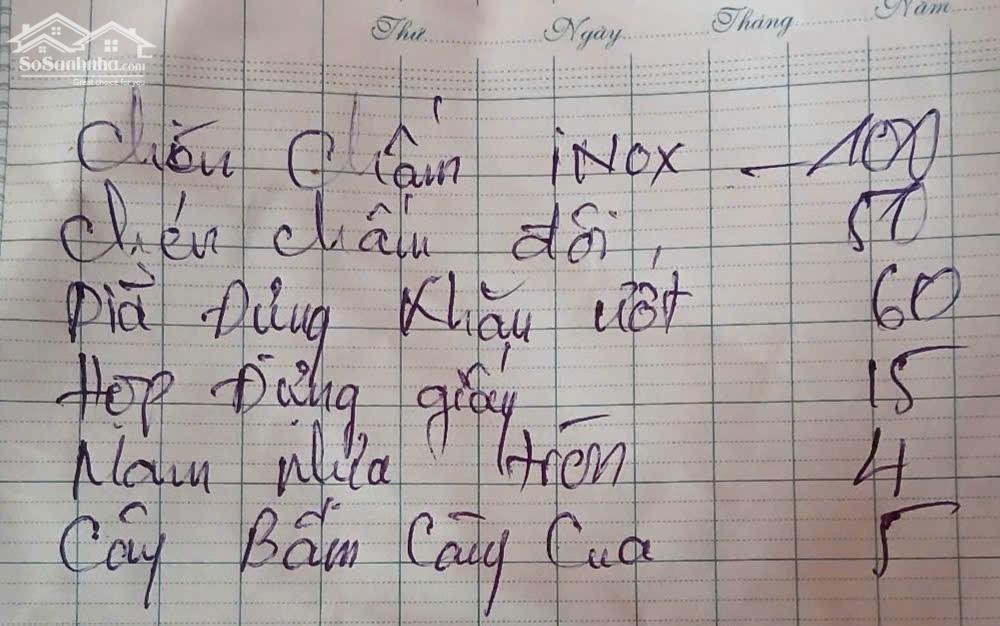 SoSanhnha.com
Great choice for you
Thứ Ngày Tháng Năm
Chén Chấm iNOX - 100
Chén chấm đôi, 50
Dĩa Đựng Khăn ướt 60
Hộp Đựng giấy 15
Mâm nhựa tròn 4
Cây Bấm Càng Cua 5